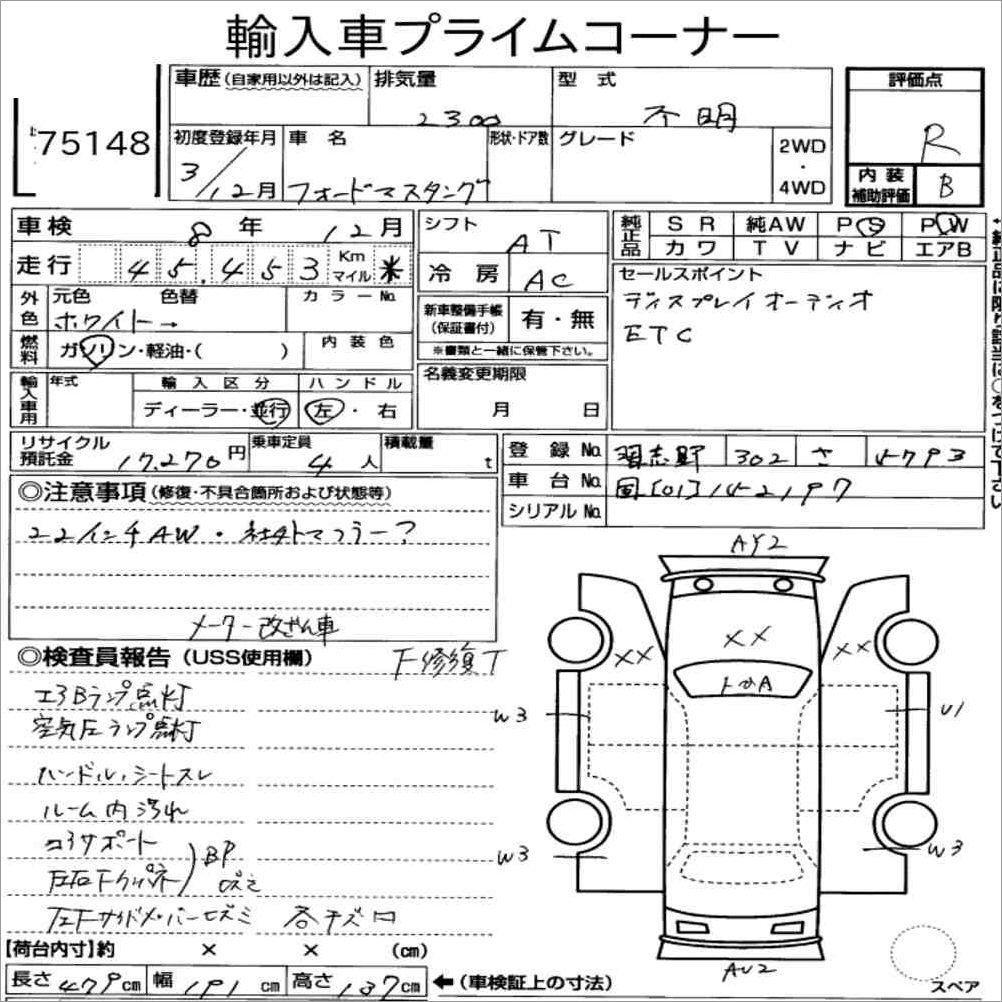 輸入車プライムコーナー
75148
車歴(自家用以外は記入) 排気量 2300 型式 不明 評価点 R
初度登録年月 3/12月 車名 フォードマスタング 形状・ドア数 グレード 2WD・4WD 内装補助評価 B
車検 8年 12月 シフト AT 純正品 SR 純AW PS PW
カワ TV ナビ エアB
走行 45,453 Km マイル * 冷房 AC
セールスポイント
ディスプレイオーディオ
ETC
外色 元色 ホワイト→ 色替 カラーNo. 新車整備手帳(保証書付) 有・無
※書類と一緒に保管下さい。
燃料 ガソリン・軽油・( ) 内装色
名義変更期限 月 日
輸入車用 年式 輸入区分 ディーラー・並行 ハンドル 左・右
リサイクル預託金 17,270円 乗車定員 4人 積載量 t
登録No. 習志野 302 さ 4793
車台No. 国[01]142197
シリアルNo.
◎注意事項(修復・不具合箇所および状態等)
22インチAW・社外マフラー?
メーター改ざん車
◎検査員報告(USS使用欄)
F修復T
エアBランプ点灯
空気圧ランプ点灯
ハンドル、シートスレ
ルーム内汚れ
コアサポート
左右Fインパネ)BP ズミ
左Fサイドメンバーヒズミ
各キズ凹
AY2
XX
XX
XX
トビA
W3
U1
W3
W3
AU2
スペア
【荷台内寸】約 × × (cm)
長さ 479cm 幅 191cm 高さ 137cm ←(車検証上の寸法)